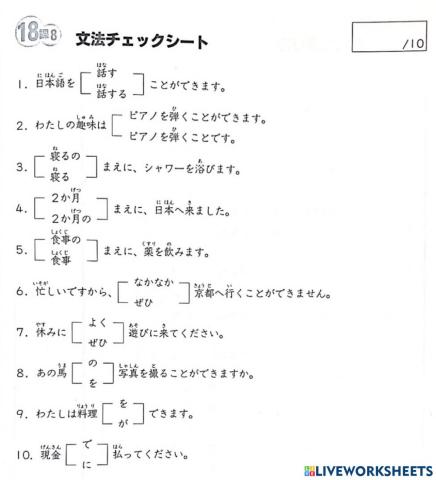 18課8 文法チェックシート
/10
1. 日本語を[話す/話する]ことができます。
2. わたしの趣味は[ピアノを弾くことができます。/ピアノを弾くことです。
3. [寝るの/寝る]まえに、シャワーを浴びます。
4. [2か月/2か月の]まえに、日本へ来ました。
5. [食事の/食事]まえに、薬を飲みます。
6. 忙しいですから、[なかなか/ぜひ]京都へ行くことができません。
7. 休みに[よく/ぜひ]遊びに来てください。
8. あの馬[の/を]写真を撮ることができますか。
9. わたしは料理[を/が]できます。
10. 現金[で/に]払ってください。
LIVEWORKSHEETS